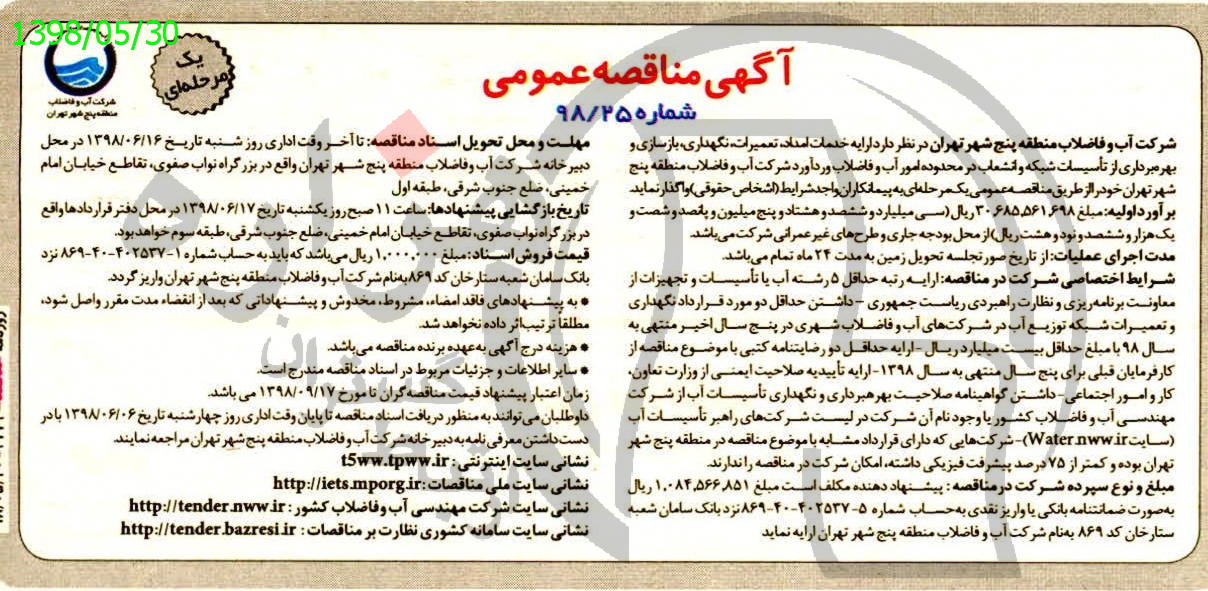 1398/05/30
آگهی مناقصه عمومی
شماره ۹۸/۲۵
یک مرحله‌ای
شرکت آب و فاضلاب
منطقه پنج شهر تهران
شرکت آب و فاضلاب منطقه پنج شهر تهران در نظر دارد ارایه خدمات امداد، تعمیرات، نگهداری، بازسازی و
بهره‌برداری از تأسیسات شبکه و انشعاب در محدوده امور آب و فاضلاب وردآورد شرکت آب و فاضلاب منطقه پنج
شهر تهران خود را از طریق مناقصه عمومی یک مرحله‌ای به پیمانکاران واجد شرایط (اشخاص حقوقی) واگذار نماید.
برآورد اولیه: مبلغ ۳۰,۶۸۵,۵۶۱,۶۹۸ ریال (سی میلیارد و ششصد و هشتاد و پنج میلیون و پانصد و شصت و
یک هزار و ششصد و نود و هشت ریال) از محل بودجه جاری و طرح‌های غیرعمرانی شرکت می‌باشد.
مدت اجرای عملیات: از تاریخ صورتجلسه تحویل زمین به مدت ۲۴ ماه تمام می‌باشد.
شرایط اختصاصی شرکت در مناقصه: ارایه رتبه حداقل ۵ رشته آب یا تأسیسات و تجهیزات از
معاونت برنامه‌ریزی و نظارت راهبردی ریاست جمهوری - داشتن حداقل دو مورد قرارداد نگهداری
و تعمیرات شبکه توزیع آب در شرکت‌های آب و فاضلاب شهری در پنج سال اخیر منتهی به
سال ۹۸ با مبلغ حداقل بیست میلیارد ریال - ارایه حداقل دو رضایتنامه کتبی با موضوع مناقصه از
کارفرمایان قبلی برای پنج سال منتهی به سال ۱۳۹۸- ارایه تأییدیه صلاحیت ایمنی از وزارت تعاون،
کار و امور اجتماعی - داشتن گواهینامه صلاحیت بهره‌برداری و نگهداری تأسیسات آب از شرکت
مهندسی آب و فاضلاب کشور یا وجود نام آن شرکت در لیست شرکت‌های راهبر تأسیسات آب
(سایت Water.nww.ir) - شرکت‌هایی که دارای قرارداد مشابه با موضوع مناقصه در منطقه پنج شهر
تهران بوده و کمتر از ۷۵ درصد پیشرفت فیزیکی داشته، امکان شرکت در مناقصه را ندارند.
مبلغ و نوع سپرده شرکت در مناقصه: پیشنهاد دهنده مکلف است مبلغ ۱,۰۸۴,۵۶۶,۸۵۱ ریال
به‌صورت ضمانتنامه بانکی یا واریز نقدی به‌حساب شماره ۵-۴۰۲۵۳۷-۴۰-۸۶۹ نزد بانک سامان شعبه
ستارخان کد ۸۶۹ به‌نام شرکت آب و فاضلاب منطقه پنج شهر تهران ارایه نماید
مهلت و محل تحویل اسناد مناقصه: تا آخر وقت اداری روز شنبه تاریخ ۱۳۹۸/۰۶/۱۶ در محل
دبیرخانه شرکت آب و فاضلاب منطقه پنج شهر تهران واقع در بزرگراه نواب صفوی، تقاطع خیابان امام
خمینی، ضلع جنوب شرقی، طبقه اول
تاریخ بازگشایی پیشنهادها: ساعت ۱۱ صبح روز یکشنبه تاریخ ۱۳۹۸/۰۶/۱۷ در محل دفتر قراردادها واقع
در بزرگراه نواب صفوی، تقاطع خیابان امام خمینی، ضلع جنوب شرقی، طبقه سوم خواهد بود.
قیمت فروش اسناد: مبلغ ۱,۰۰۰,۰۰۰ ریال می‌باشد که باید به حساب شماره ۱-۴۰۲۵۳۷-۴۰-۸۶۹ نزد
بانک سامان شعبه ستارخان کد ۸۶۹ به‌نام شرکت آب و فاضلاب منطقه پنج شهر تهران واریز گردد.
* به پیشنهادهای فاقد امضاء، مشروط، مخدوش و پیشنهاداتی که بعد از انقضاء مدت مقرر واصل شود،
مطلقاً ترتیب‌اثر داده نخواهد شد.
* هزینه درج آگهی به‌عهده برنده مناقصه می‌باشد.
* سایر اطلاعات و جزئیات مربوط در اسناد مناقصه مندرج است.
زمان اعتبار پیشنهاد قیمت مناقصه‌گران تا مورخ ۱۳۹۸/۰۹/۱۷ می باشد.
داوطلبان می‌توانند به منظور دریافت اسناد مناقصه تا پایان وقت اداری روز چهارشنبه تاریخ ۱۳۹۸/۰۶/۰۶ با در
دست داشتن معرفی نامه به دبیرخانه شرکت آب و فاضلاب منطقه پنج شهر تهران مراجعه نمایند.
نشانی سایت اینترنتی: t5ww.tpww.ir
نشانی سایت ملی مناقصات: http://iets.mporg.ir
نشانی سایت شرکت مهندسی آب و فاضلاب کشور: http://tender.nww.ir
نشانی سایت سامانه کشوری نظارت بر مناقصات: http://tender.bazresi.ir